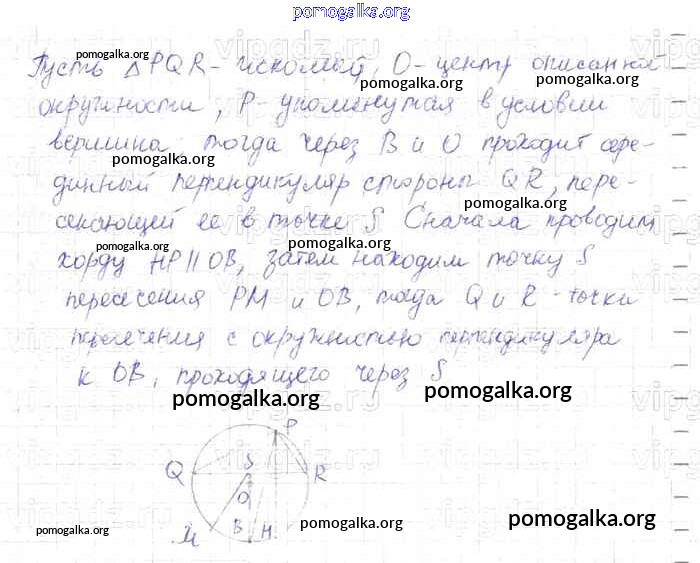 pomogalka.org
Пусть △PQR - искомый, O - центр описанной
pomogalka.org
pomogalka.org
окружности, P - упомянутая в условии
вершина, тогда через B и O проходит сере-
pomogalka.org
динный перпендикуляр стороны QR, пере-
pomogalka.org
секающей ее в точке S. Сначала проводим
pomogalka.org
pomogalka.org
хорду HP || OB, затем находим точку S
пересесения PM и OB, тогда Q и R - точки
пересечения с окружностью перпендикуляра
к OB, проходящего через S
pomogalka.org
pomogalka.org
P
Q
S
R
O
M
B
H
pomogalka.org
pomogalka.org
pomogalka.org